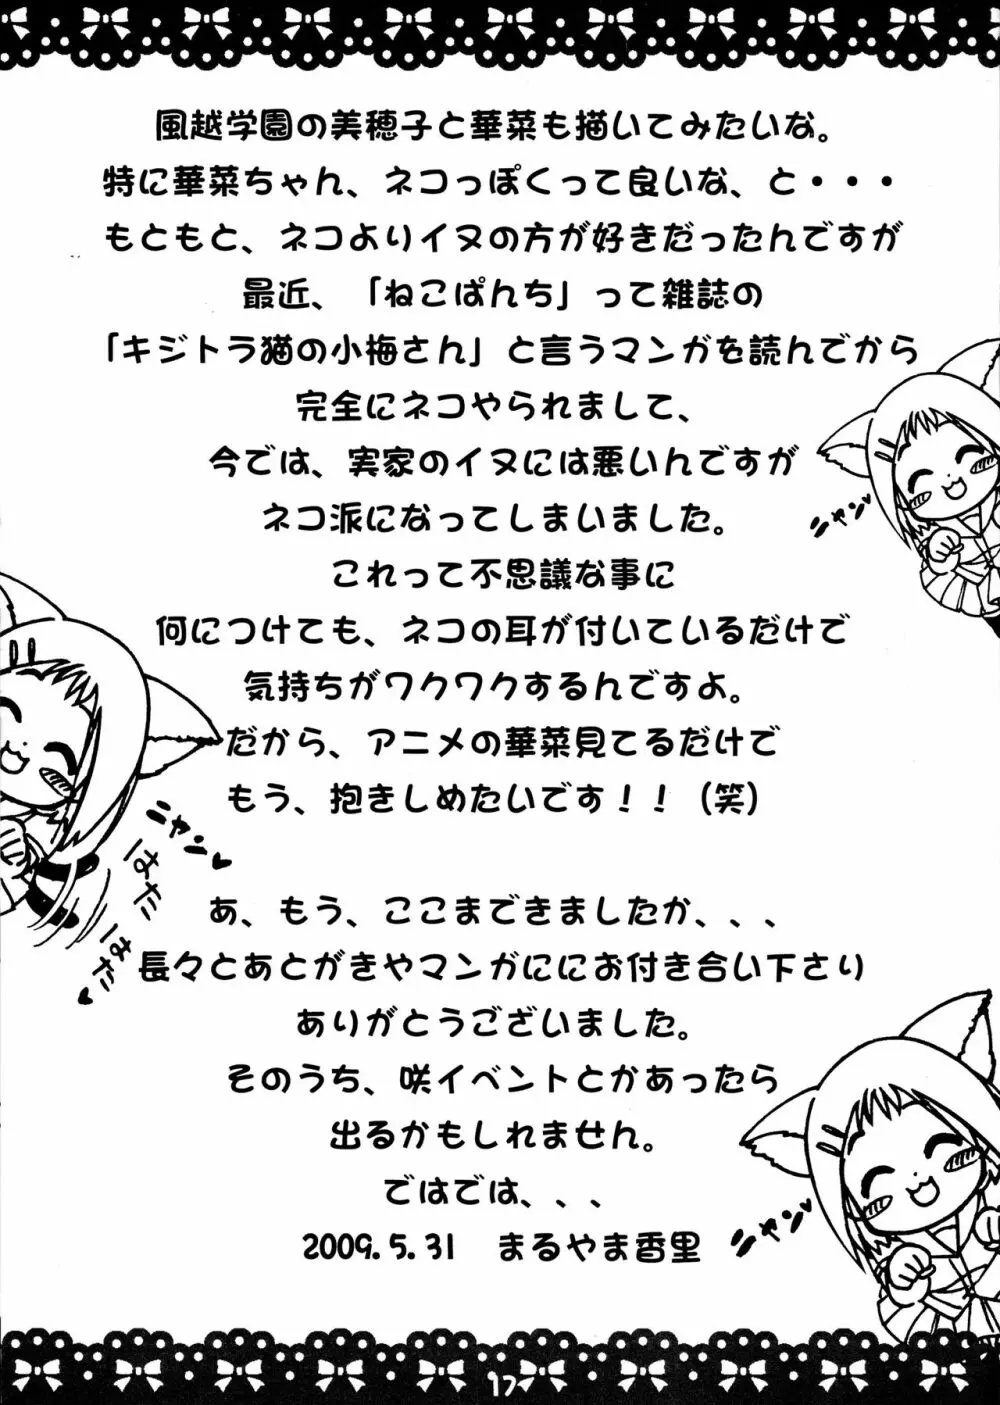 風越学園の美穂子と華菜も描いてみたいな。
特に華菜ちゃん、ネコっぽくって良いな、と・・・
もともと、ネコよりイヌの方が好きだったんですが
最近、「ねこぱんち」って雑誌の
「キジトラ猫の小梅さん」と言うマンガを読んでから
完全にネコやられまして、
今では、実家のイヌには悪いんですが
ネコ派になってしまいました。
これって不思議な事に
何につけても、ネコの耳が付いているだけで
気持ちがワクワクするんですよ。
だから、アニメの華菜見てるだけで
もう、抱きしめたいです！！（笑）
あ、もう、ここまできましたか、、、
長々とあとがきやマンガににお付き合い下さり
ありがとうございました。
そのうち、咲イベントとかあったら
出るかもしれません。
ではでは、、、
2009.5.31　まるやま香里
ニャン♥
ニャン♥
ぱた
ぱた♥
ニャン♥
17